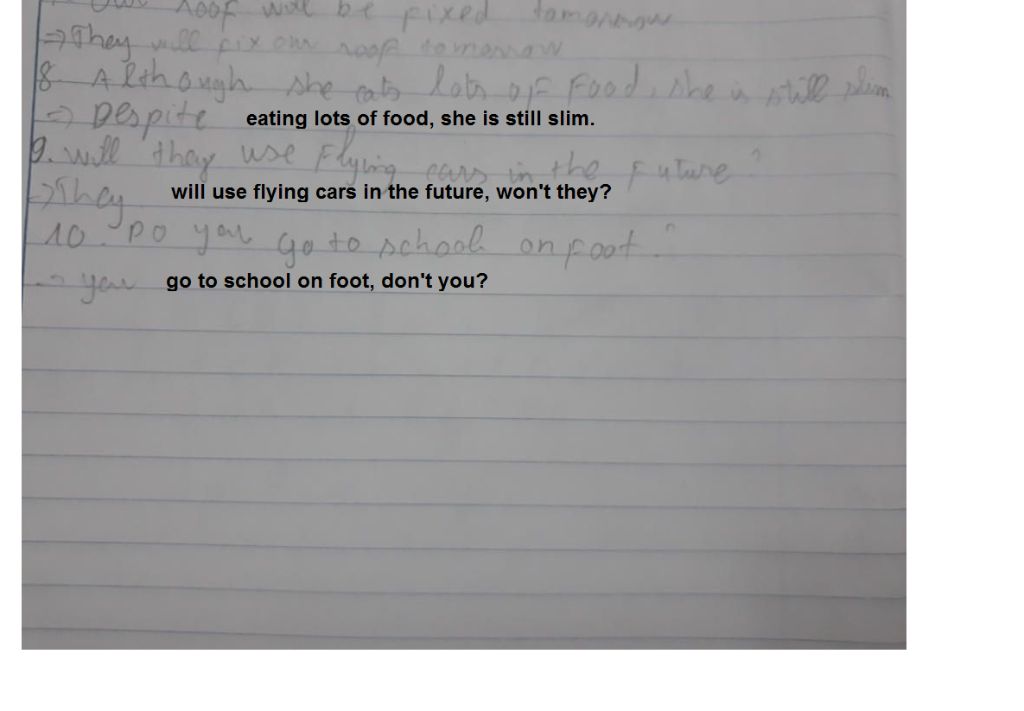 Our roof will be fixed tomorrow
=> They will fix our roof tomorrow
8. Although she eats lots of Food, she is still slim
=> Despite eating lots of food, she is still slim.
9. will they use Flying cars in the Future ?
=> They will use flying cars in the future, won't they?
10. Do you go to school on foot ?
-> you go to school on foot, don't you?